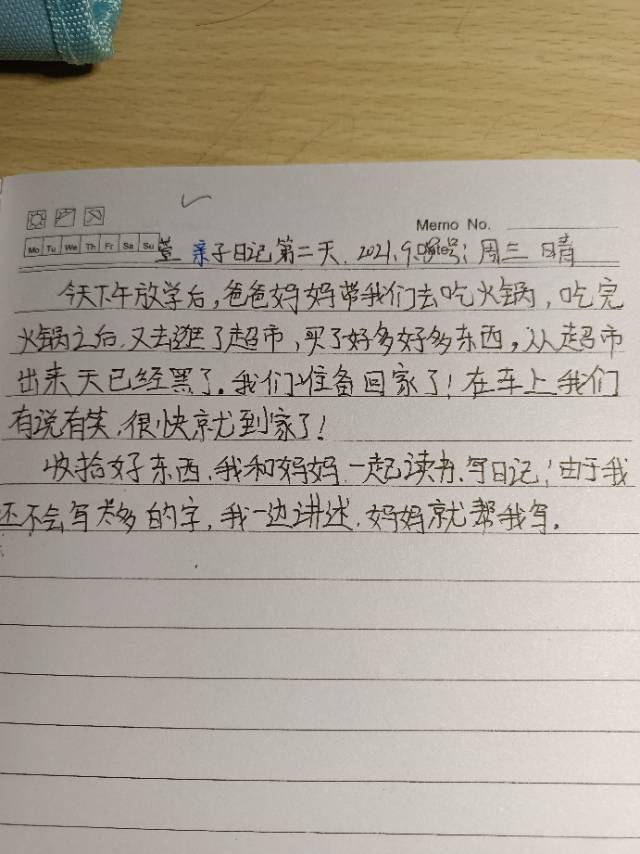 Memo No.
Mo Tu We Th Fr Sa Su
萱 亲子日记第二天. 2021.9.8号; 周三 晴
今天下午放学后,爸爸妈妈带我们去吃火锅,吃完
火锅之后.又去逛了超市,买了好多好多东西,从超市
出来天已经黑了。我们准备回家了!在车上我们
有说有笑.很快就到家了!
收拾好东西.我和妈妈一起读书.写日记;由于我
还不会写太多的字,我一边讲述.妈妈就帮我写.